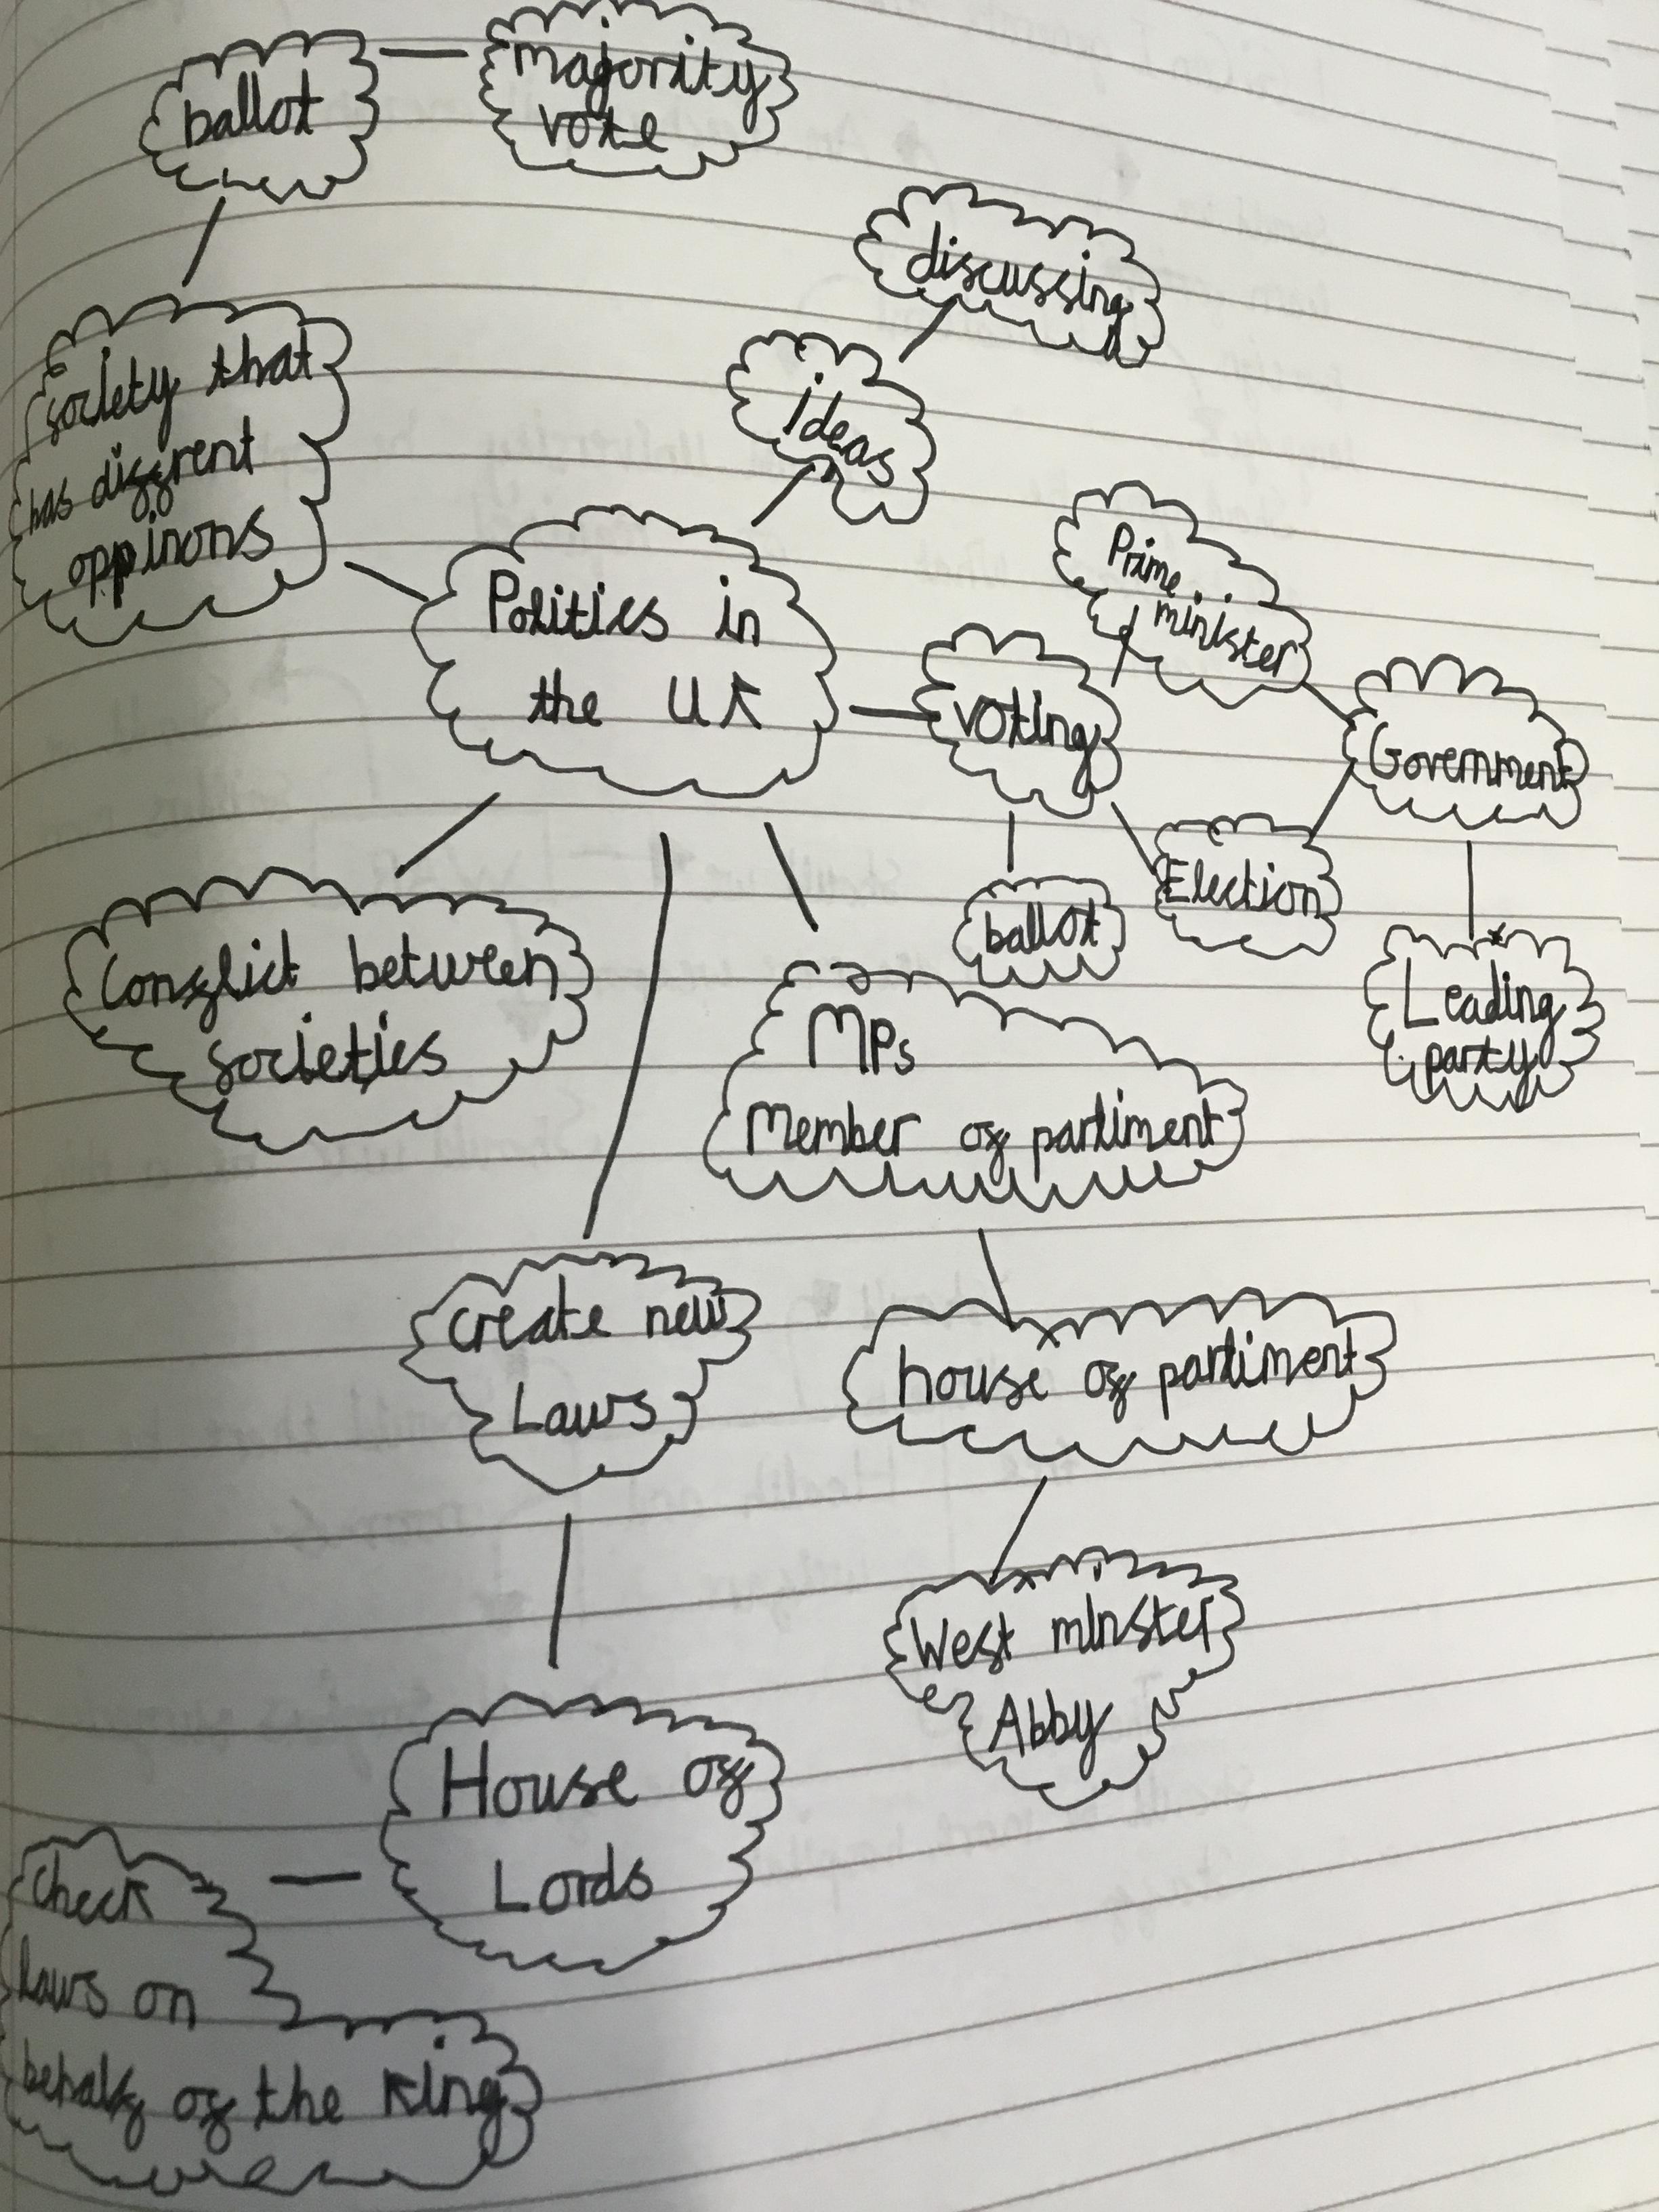 ballot
majority
vote
discussing
ideas
society that
has diffrent
oppinons
Prime
minister
Politics in
the UK
voting
Government
Election
ballot
Leading
party
Conflict between
societies
MPs
Member of parliment
create new
Laws
house of parliment
West minster
Abby
House of
Lords
check
laws on
behalf of the King